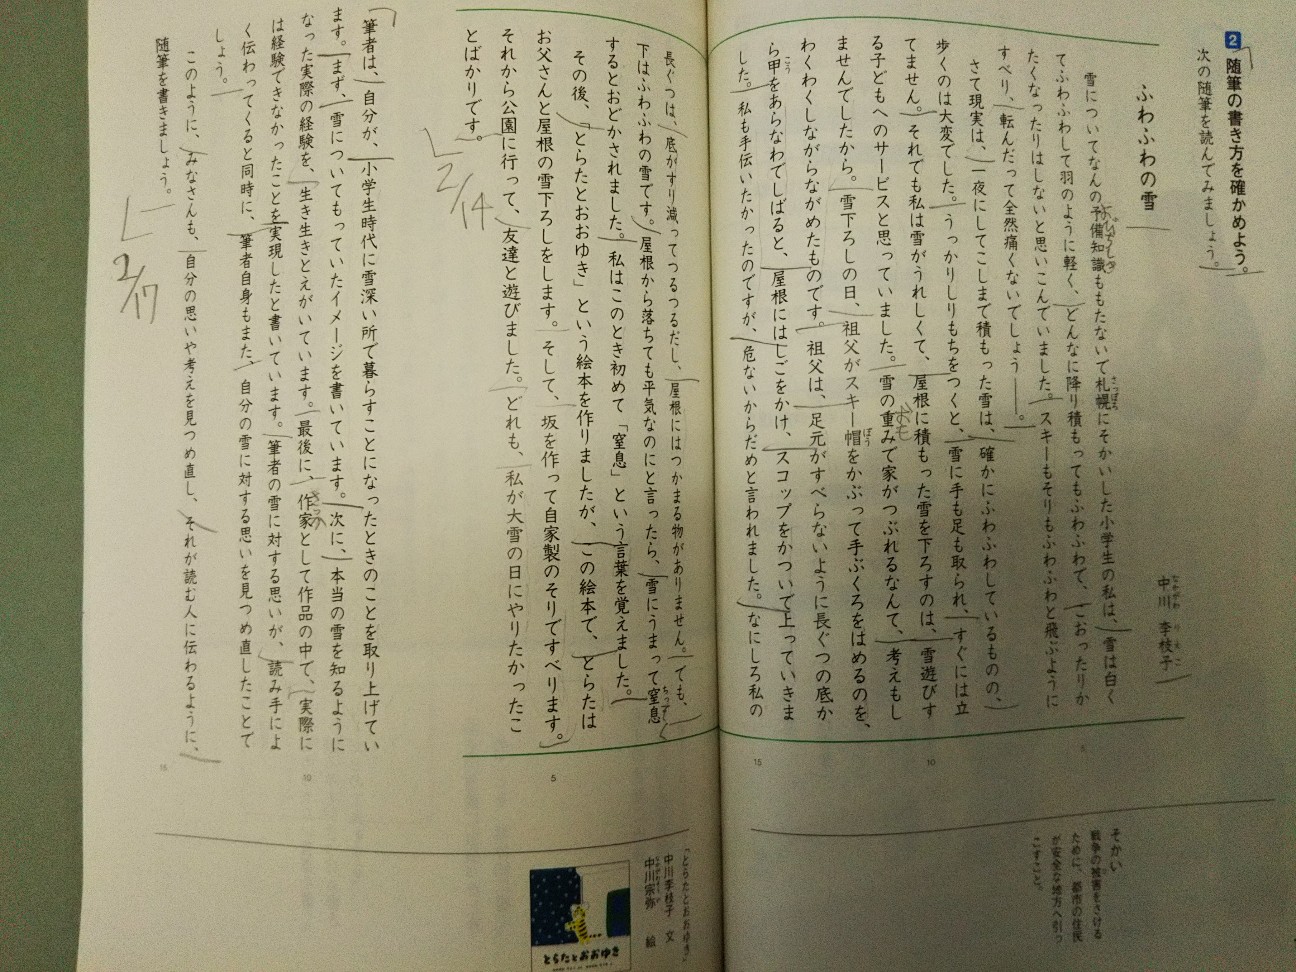 2 随筆の書き方を確かめよう。
次の随筆を読んでみましょう。
ふわふわの雪
中川 李枝子
雪についてなんの予備知識ももたないで札幌にそかいした小学生の私は、雪は白く
てふわふわして羽のように軽く、どんなに降り積もってもふわふわで、こおったりか
たくなったりはしないと思いこんでいました。スキーもそりもふわふわと飛ぶように
すべり、転んだって全然痛くないでしょう――。
さて現実は、一夜にしてこしまで積もった雪は、確かにふわふわしているものの、
歩くのは大変でした。うっかりしりもちをつくと、雪に手も足も取られ、すぐには立
てません。それでも私は雪がうれしくて、屋根に積もった雪を下ろすのは、雪遊びす
る子どもへのサービスと思っていました。雪の重みで家がつぶれるなんて、考えもし
ませんでしたから。雪下ろしの日、祖父がスキー帽をかぶって手ぶくろをはめるのを、
わくわくしながらながめたものです。祖父は、足元がすべらないように長ぐつの底か
ら甲をあらなわでしばると、屋根にはしごをかけ、スコップをかついで上っていきま
した。私も手伝いたかったのですが、危ないからだめと言われました。なにしろ私の
5
10
15
そかい
戦争の被害をさける
ために、都市の住民
が安全な地方へ引っ
こすこと。
長ぐつは、底がすり減ってつるつるだし、屋根にはつかまる物がありません。でも、
下はふわふわの雪です。屋根から落ちても平気なのにと言ったら、雪にうまって窒息
するとおどかされました。私はこのとき初めて「窒息」という言葉を覚えました。
その後、「とらたとおおゆき」という絵本を作りましたが、この絵本で、とらたは
お父さんと屋根の雪下ろしをします。そして、坂を作って自家製のそりですべります。
それから公園に行って、友達と遊びました。どれも、私が大雪の日にやりたかったこ
とばかりです。
2/14
筆者は、自分が、小学生時代に雪深い所で暮らすことになったときのことを取り上げてい
ます。まず、雪についてもっていたイメージを書いています。次に、本当の雪を知るように
なった実際の経験を、生き生きとえがいています。最後に、作家として作品の中で、実際に
は経験できなかったことを実現したと書いています。筆者の雪に対する思いが、読み手によ
く伝わってくると同時に、筆者自身もまた、自分の雪に対する思いを見つめ直したことで
しょう。
このように、みなさんも、自分の思いや考えを見つめ直し、それが読む人に伝わるように、
随筆を書きましょう。
2/17
5
10
15
「とらたとおおゆき」
中川李枝子 文
中川宗弥 絵
とらたとおおゆき